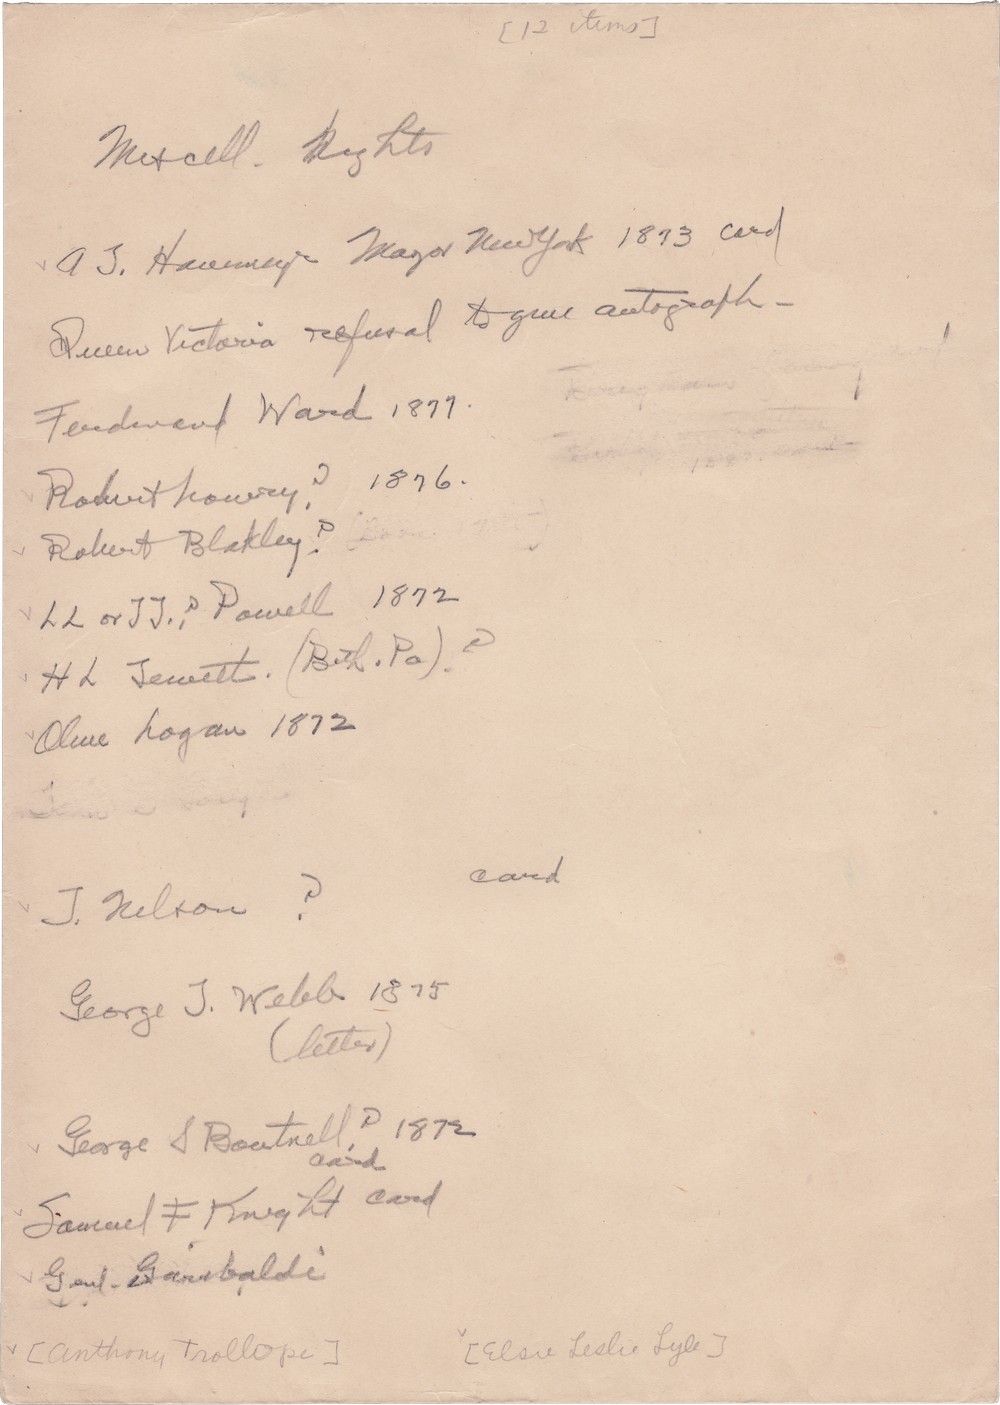 [12 items]
Miscell. Rights
A J. Havemeyer Mayor New York 1873 card
Queen Victoria refusal to give autograph -
Ferdinand Ward 1877.
Robert Lowery? 1876.
Robert Blakley?
LL or JJ.? Powell 1872
H L Jewett. (Beth. Pa).?
Olive Logan 1872
card
J. Nelson ?
George J. Webb 1875
(letter)
George S Boutnell? 1872
card
Samuel F Knight card
Genl. Garibaldi
[Anthony Trollope] [Elsie Leslie Lyle]